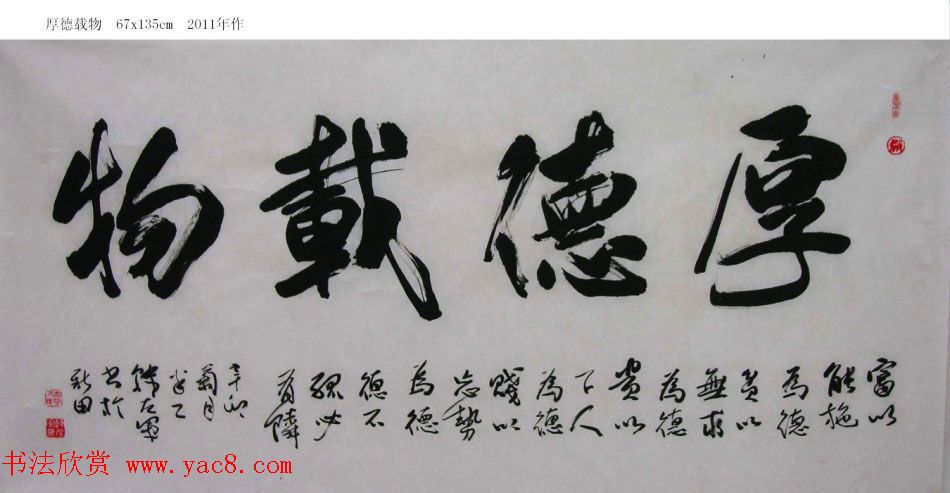 厚德载物 67x135cm 2011年作
厚德載物
富以
能施
為德
貧以
無求
為德
貴以
下人
為德
賤以
忘勢
為德
德不
孤必
有隣
辛卯
菊月
书於
新田
书法欣赏 www.yac8.com